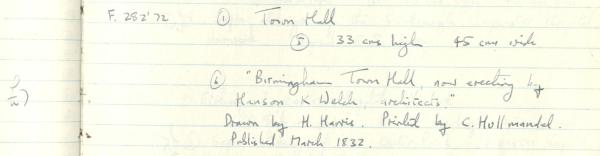 F. 282'72 ① Town Hall
⑤ 33 cms high 45 cms wide
⑥ "Birmingham Town Hall, now erecting by
Hanson & Welch, architects."
Drawn by H. Harris. Printed by C. Hullmandel.
Published March 1832.